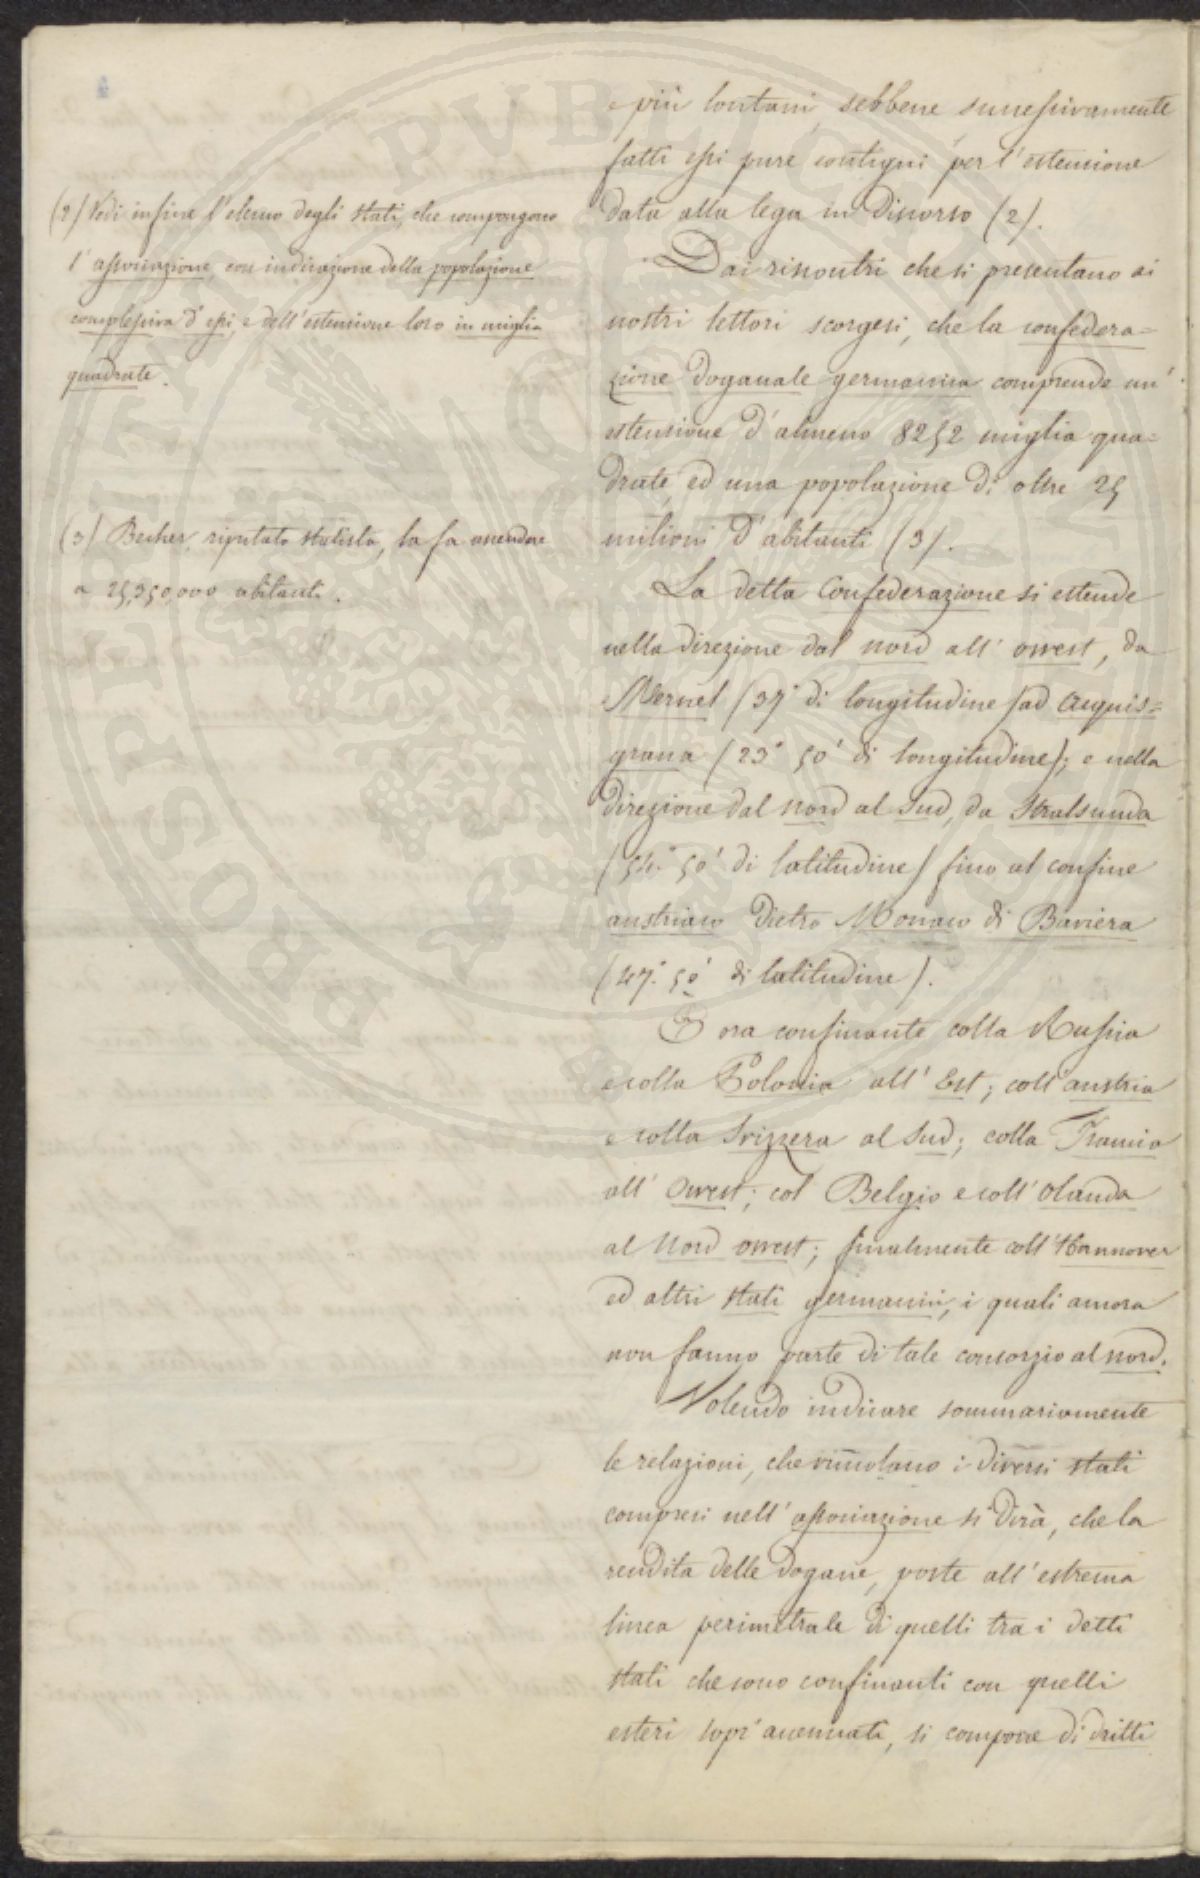 e più lontani, sebbene successivamente
fatti essi pure contigui per l'estensione
data alla lega in discorso (2).
Dai riscontri che si presentano ai
nostri lettori scorgesi, che la confedera=
zione doganale germanica comprende un'
estensione d'almeno 8252 miglia qua=
drate, ed una popolazione di oltre 25
milioni d'abitanti (3).
La detta Confederazione si estende
nella direzione dal nord all'ovvest, da
Memel (37° di longitudine) ad Acquis=
grana (23° 50' di longitudine); e nella
direzione dal nord al sud, da Stralsunda
(54° 50' di latitudine) fino al confine
austriaco dietro Monaco di Baviera
(47° 50' di latitudine).
È ora confinante colla Russia
e colla Polonia all'Est; coll'austria
e colla Svizzera al sud; colla Francia
all'Ovvest; col Belgio e coll'olanda
al Nord ovvest; finalmente coll'Hannover
ed altri stati germanici, i quali ancora
non fanno parte di tale consorzio al nord.
Volendo indicare sommariamente
le relazioni, che vincolano i diversi stati
compresi nell'associazione si dirà, che la
rendita delle dogane, poste all'estrema
linea perimetrale di quelli tra i detti
stati che sono confinanti con quelli
esteri sopr'accennati, si compone di dritti
(2) Vedi in fine l'elenco degli stati, che compongono
l'associazione, con indicazione della popolazione
complessiva d'essi, e dell'estensione loro in miglia
quadrate.
(3) Becher, riputato statista, la fa ascendere
a 25,950,000 abitanti.
PROSSPERITATI PVBLICAE